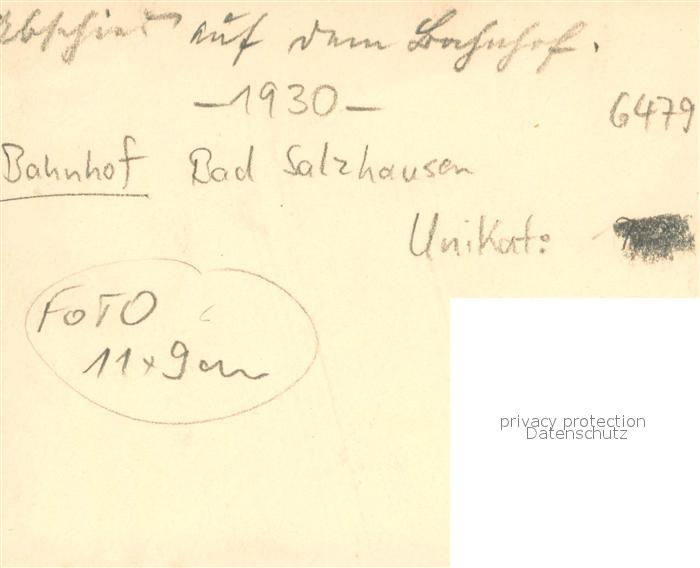 Abschied auf dem Bahnhof.
– 1930 –
6479
Bahnhof Bad Salzhausen
Unikat:
FOTO
11 x 9 cm
privacy protection
Datenschutz